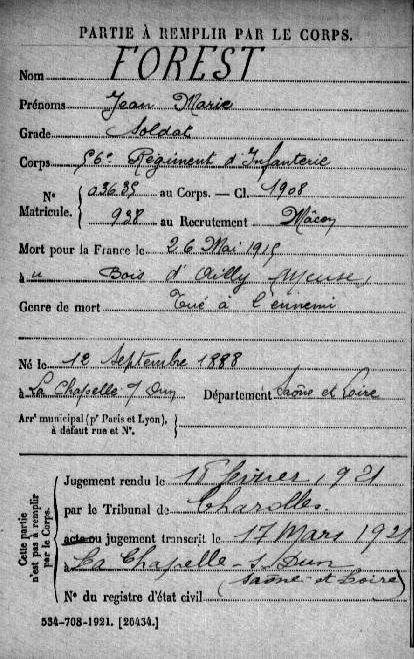 PARTIE À REMPLIR PAR LE CORPS.
Nom FOREST
Prénoms Jean Marie
Grade Soldat
Corps 56e Régiment d'Infanterie
Nº Matricule. { 03635 au Corps. — Cl. 1908
938 au Recrutement Mâcon
Mort pour la France le 26 Mai 1915
à u Bois d'Ailly Meuse,
Genre de mort Tué à l'ennemi
Né le 12 Septembre 1888
à La Chapelle s/ Dun Département Saône et Loire
Arrt municipal (pr Paris et Lyon), à défaut rue et Nº. }
Cette partie n'est pas à remplir par le Corps.
Jugement rendu le 15 Février 1921
par le Tribunal de Charolles
acte ou jugement transcrit le 17 Mars 1921
à La Chapelle-s-Dun
(Saône-et-Loire)
Nº du registre d'état civil
534-708-1921. [26434.]